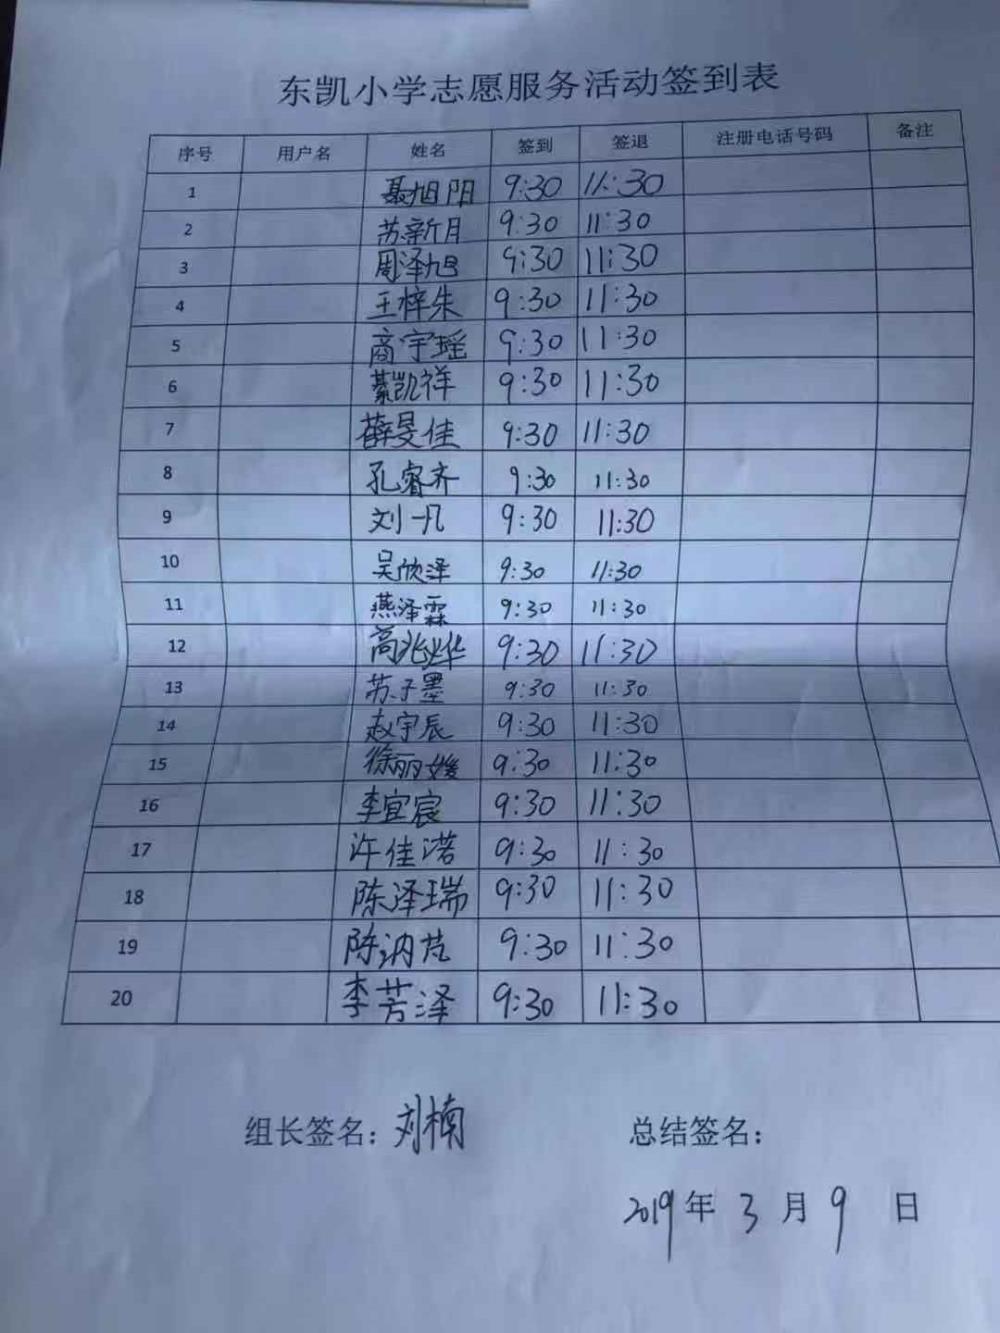 东凯小学志愿服务活动签到表
序号 用户名 姓名 签到 签退 注册电话号码 备注
1 聂旭阳 9:30 11:30
2 苏新月 9:30 11:30
3 周泽旭 9:30 11:30
4 王梓朱 9:30 11:30
5 商宇瑶 9:30 11:30
6 綦凯祥 9:30 11:30
7 薛旻佳 9:30 11:30
8 孔睿齐 9:30 11:30
9 刘一凡 9:30 11:30
10 吴欣泽 9:30 11:30
11 燕泽霖 9:30 11:30
12 高兆烨 9:30 11:30
13 苏子墨 9:30 11:30
14 赵宇辰 9:30 11:30
15 徐丽媛 9:30 11:30
16 李宜宸 9:30 11:30
17 许佳诺 9:30 11:30
18 陈泽瑞 9:30 11:30
19 9:30 11:30
20 李芳泽 9:30 11:30
组长签名：刘楠 总结签名：
2019年 3 月 9 日